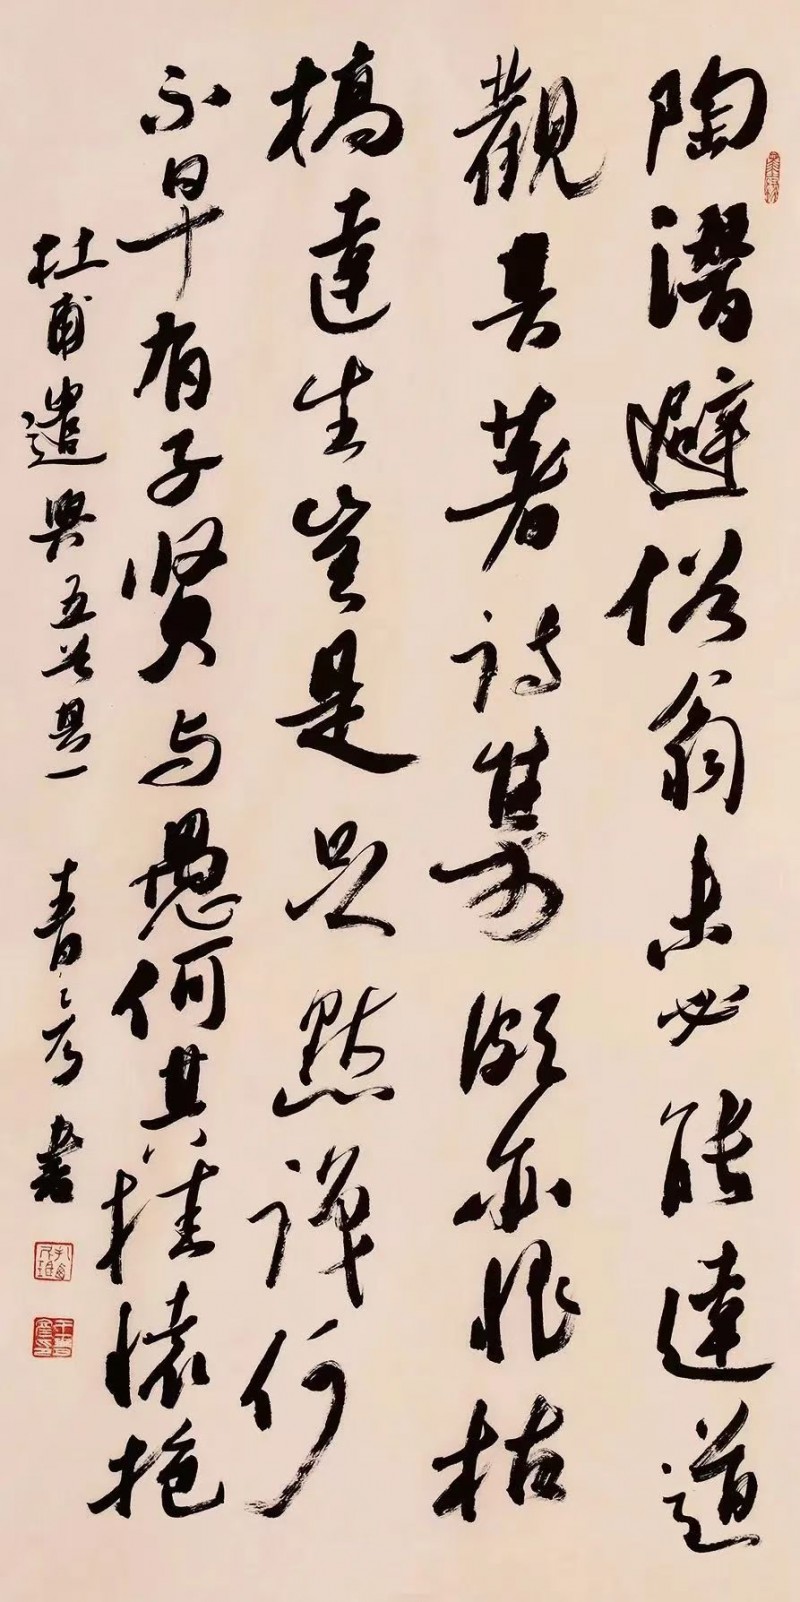 陶潛避俗翁未必能達道
觀其著诗集頗亦恨枯
槁達生豈是足默識何
不早有子贤与愚何其掛懷抱
杜甫遣興五首其一 書